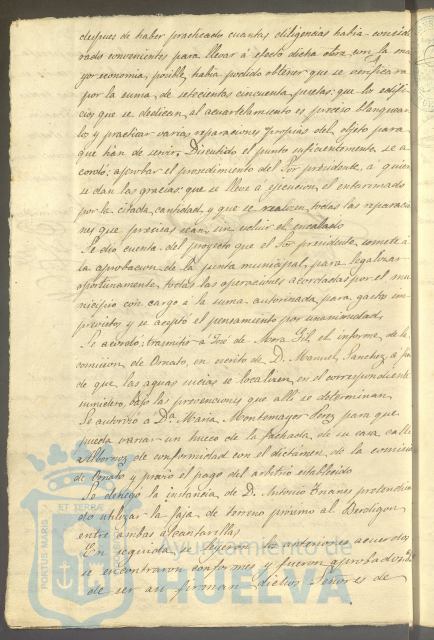 despues de haber practicado cuantas diligencias habia consid
rado convenientes para llevar á efecto dicha obra con la ma
yor economia, posible habia podido obtener que se verificara
por la suma de setecientas cincuenta pesetas: que los edifi
cios que se dedican al acuartelamiento es preciso blanquear
los y practicar varias reparaciones propias del objeto para
que han de servir. Discutido el punto suficientemente se a
cordó: aprobar el procedimiento del Sor presidente, á quien
se dan las gracias: que se lleve a ejecucion el entarimado
por la citada cantidad y que se realicen todas las reparacio
nes que precisas sean, sin excluir el encalado
Se dio cuenta del proyecto que el Sor presidente somete á
la aprobacion de la junta municipal, para legalizar
oportunamente todas las operaciones acordadas por el mu
nicipio con cargo á la suma autorizada para gastos im
previstos y se aceptó el pensamiento por unanimidad.
Se acordo: trasmitir a José de Mora Gil el informe de la
comision de Ornato, en escrito de D. Manuel Sanchez a fin
de que las aguas sucias se localicen en el correspondiente
sumidero, bajo las prevenciones que alli se determinan
Se autorizó a Da. Maria Montemayor Perez para que
pueda variar un hueco de la fachada de su casa calle
Albornoz de conformidad con el dictamen de la comision
de Ornato y previo el pago del arbitrio establecido
Se denegó la instancia de D. Antonio Ynanes pretendien
do utilizar la faja de terreno proximo al Berdigon
entre ambas alcantarillas
En seguida se leyeron los anteriores acuerdos
se encontraron conformes y fueron aprobados
de ser asi firman dichos Señores de
PORTUS MARIS
ET TERRÆ
Ayuntamiento de
HUELVA